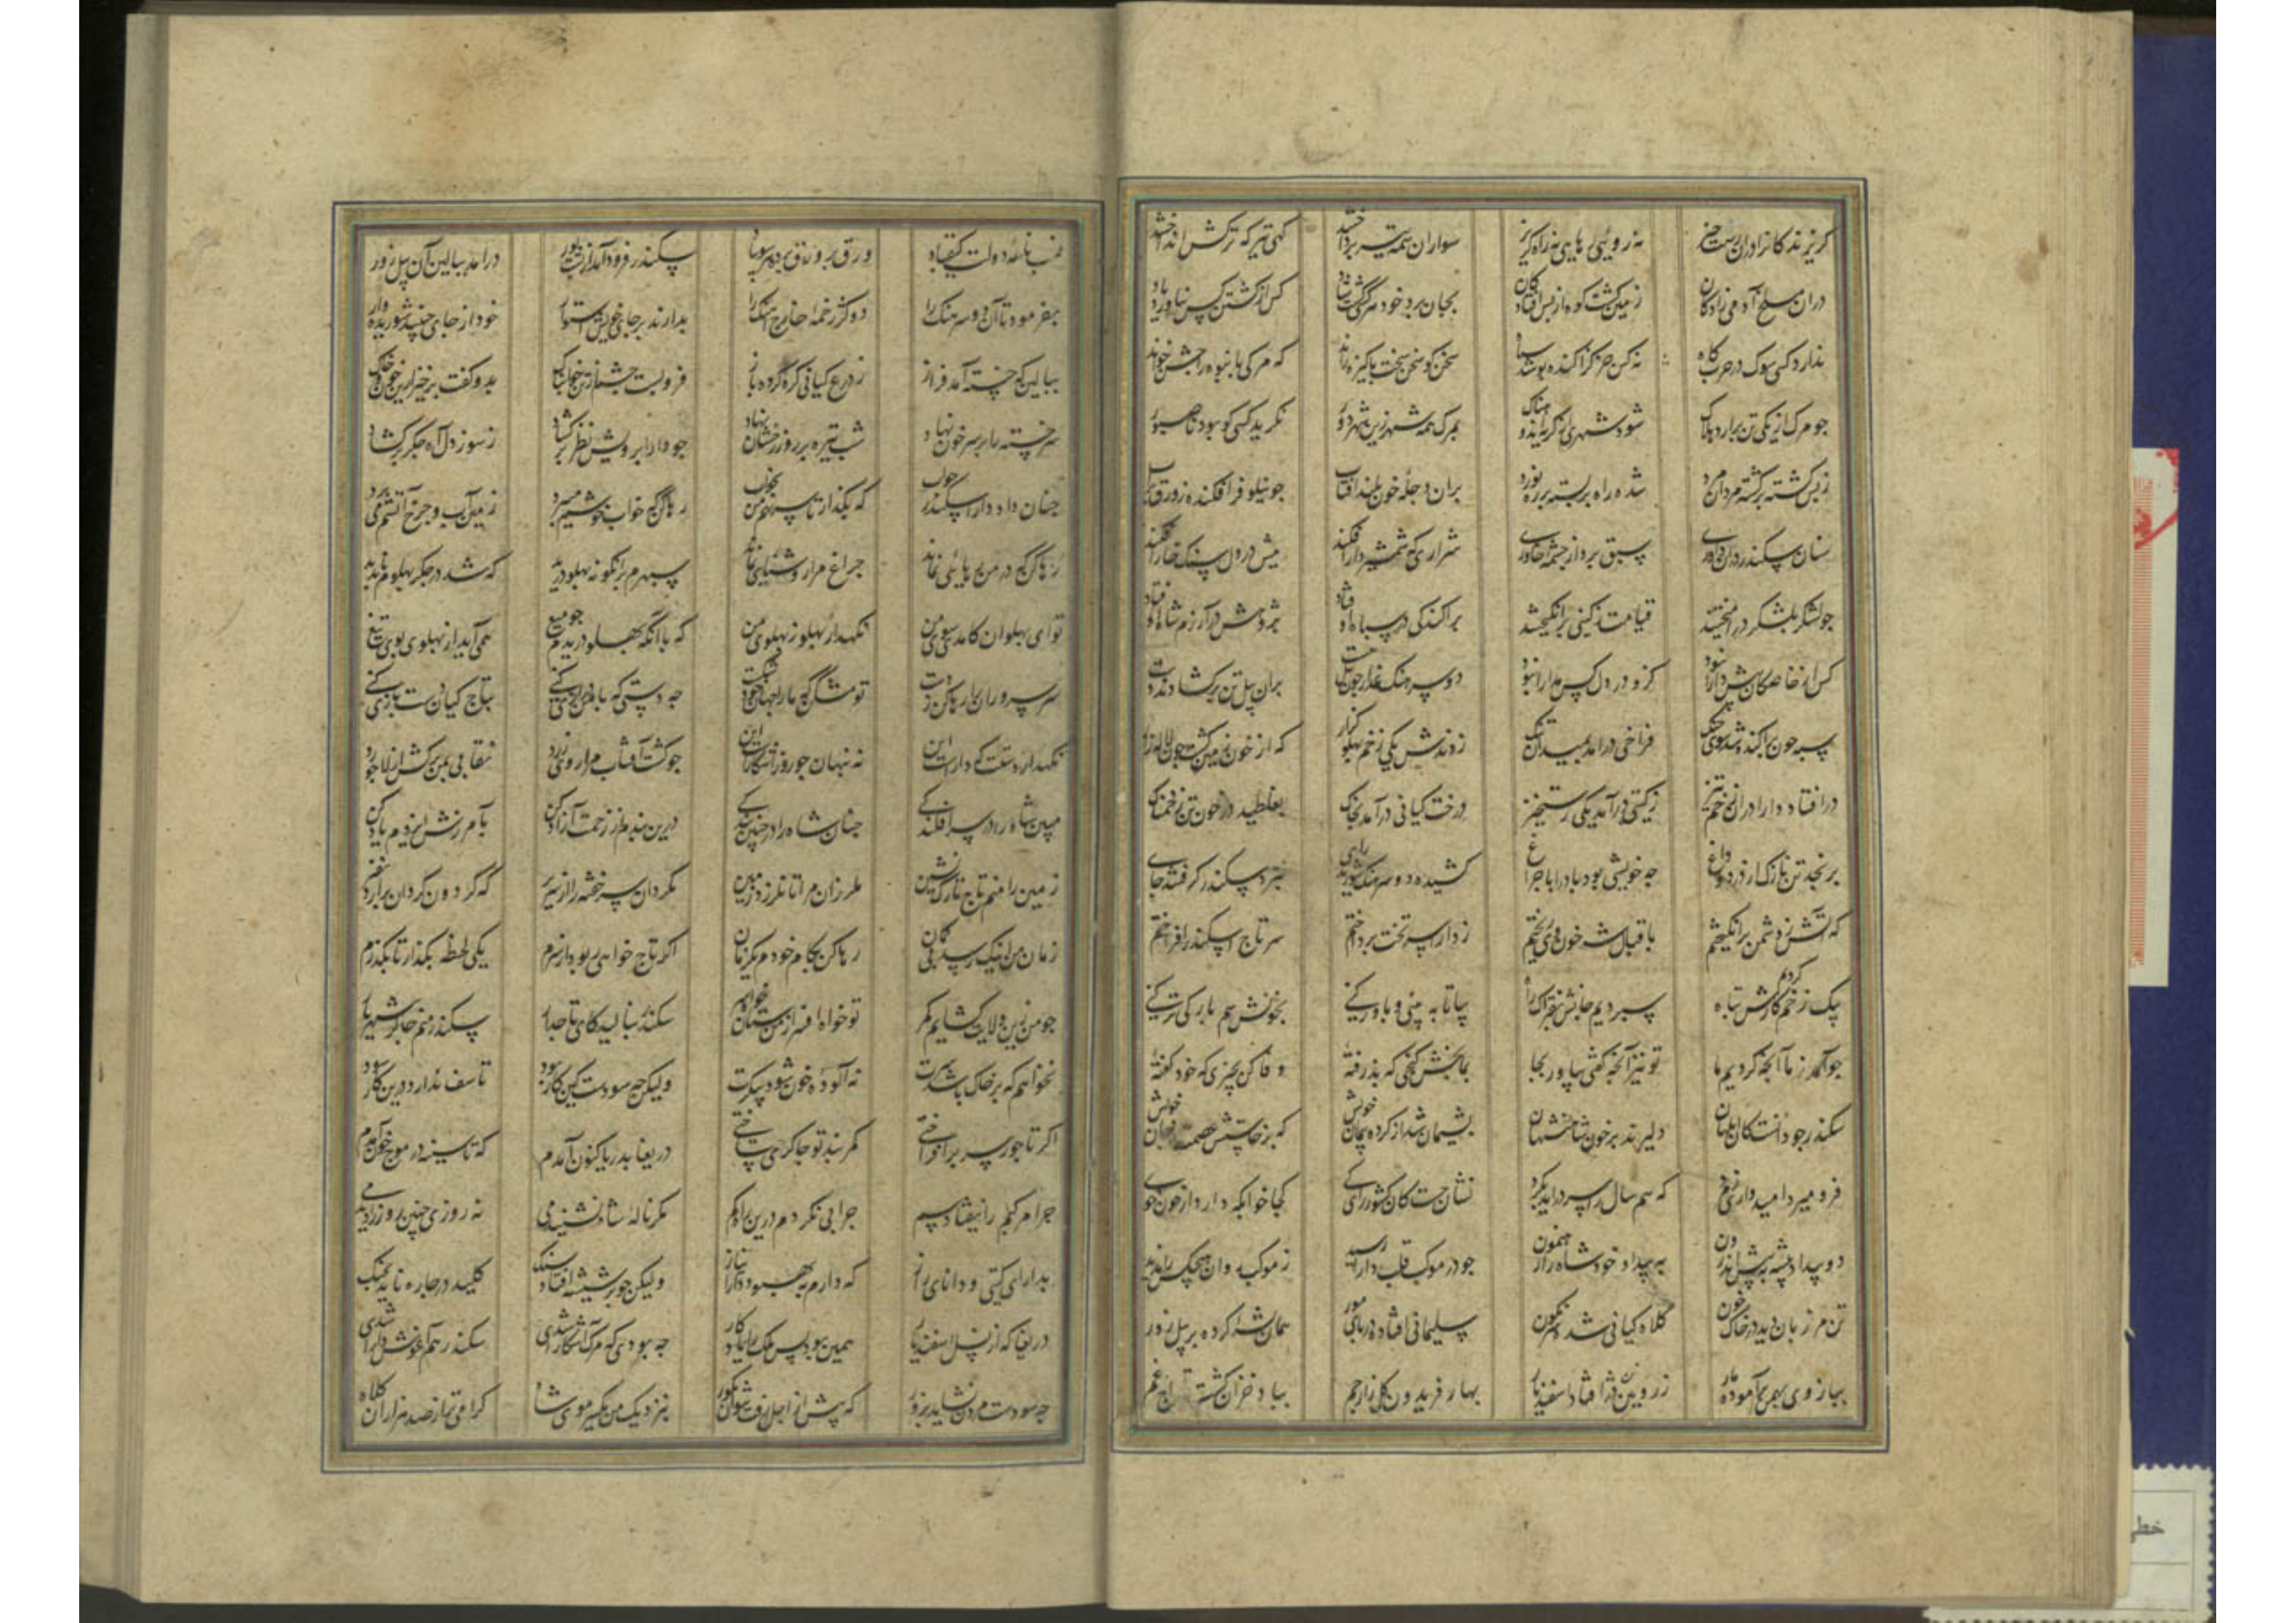 گریزندگان را در آن رستخیز نه روئی رهایی نه راه گریز سواران همه تیر پرداخته گهی تیر که ترکش انداخته
در آن مسلخ آدمی زادگان زمین گشت کوه از بس افتادگان بجان برد خود هر کسی گشته شاد کس از کشتن کس نیاورد یاد
ندارد کسی سوک در حربگاه نه کس جز کژاکند پوشد سیاه سخن گو سخن سخت پاکیزه راند که مرگ بانبوه را جشن خواند
چو مرگ از یکی تن برآرد هلاک شود شهری از گریه اندوهناک بمرگ همه شهر ازین شهر دور نگرید کسی کو بود ناصبور
ز بس کشته بر کشته مردان مرد شده راه بربسته بر ره نورد بران دجله خون بلند آفتاب چو نیلوفر افکنده زورق در آب
سنان سکندر در آن داوری سبق برد از چشمه خاوری شراری که شمشیر دارا فکند تپش در دل سنگ خارا فکند
چو لشکر بلشکر در آمیختند قیامت ز گیتی برانگیختند پراکندگی در سپاه اوفتاد پژوهش در آزرم شاه اوفتاد
کس از خاصگان پیش دارا نبود کزو در دل کس مدارا نبود دو سرهنگ غدار چون پیل مست بران پیل تن برگشادند دست
سپه چون پراکنده شد سوی جنگ فراخی در آمد بمیدان تنگ زدندش یکی زخم پهلو گذار که از خون زمین گشت چون لاله زار
در افتاد دارا در آن زخم تیز ز گیتی برآمد یکی رستخیز درخت کیانی در آمد بخاک بغلطید در خون تن زخمناک
برنجد تن نازک از درد و داغ چه خویشی بود باد را با چراغ کشیده دو سرهنگ شوریده رای بنزد سکندر گرفتند جای
که آتش ز دشمن برانگیختیم باقبال شه خون او ریختیم ز دارا سر تخت پرداختیم سر تاج اسکندر افراختیم
بیک زخم کردیم کارش تباه سپردیم جانش بفتراک شاه بیا تا ببینی و باور کنی بخونش سم بارگی تر کنی
چو آمد ز ما آنچه کردیم ما تو نیز آنچه گفتی بیاور بجا بما بخش گنجی که پذرفته وفا کن بچیزی که خود گفته
سکندر چو دانست کان ابلهان دلیرند بر خون شاهنشهان پشیمان شد از کرده پیمان خویش که برخاستش عصمت از جان خویش
فرو میرد امیدواری ز مرد که همسال را سر در آید بگرد نشان جست کان کشور آرای کی کجا خوابگه دارد از خون و خوی
دو بیداد پیشه به پیش اندرون به بیداد خود شاه را رهنمون چو در موکب قلب دارا رسید ز موکب روان هیچکس را ندید
تن مرزبان دید در خاک و خون کلاه کیانی شده سرنگون سلیمانی افتاده در پای مور همان پشه ای کرده بر پیل زور
ببازوی بهمن برآموده مار ز رویین دژ افتاده اسفندیار بهار فریدون و گلزار جم بباد خزان گشته تاراج غم
نسب نامه دولت کیقباد ورق بر ورق برده هر سوی باد سکندر فرود آمد از پشت بور در آمد ببالین آن پیل زور
بفرمود تا آن دو سرهنگ را دو کژ زخمه خارج آهنگ را بدارند بر جای خویش استوار خود از جای جنبید شوریده وار
ببالین گه خسته آمد فراز ز درع کیانی گره کرده باز فرو بست چشم آن تن خوابناک بدو گفت برخیز ازین خون و خاک
سر خسته را بر سر خون نهاد شب تیره بر روز رخشان نهاد چو دارا برویش نظر برگشاد ز سوز دل آه جگر برگشاد
چنان داد دارا سکندر جواب که بگذار تا سر نهم من بخواب رها کن که خواب خوشم میبرد زمین آب و چرخ آتشم میبرد
رها کن که در من رهایی نماند چراغ مرا روشنایی نماند سپهرم برانگونه پهلو درید که شد در جگر پهلویم ناپدید
تو ای پهلوان کامدی سوی من نگهدار پهلو ز پهلوی من که با آنکه پهلو دریدم چو میغ همی آید از پهلوی بوی تیغ
سر سروران را رها کن ز دست تو مشکن که ما را جهان خود شکست چه دستی که با ما درازی کنی بتاج کیان دست بازی کنی
نگهدار دستت که داراست این نه پنهان چو روز آشکاراست این چو گشت آفتاب مرا روی زرد نقابی بمن برکش از لاجورد
مبین شاه را در سرافکندگی چنان شاه را در چنین بندگی درین بندم از زحمت آزاد کن بآمرزش ایزدم یاد کن
زمین را منم تاج تارک نشین ملرزان مرا تا نلرزد زمین مگردان سر خفته را از سریر که گردون گردان برآرد نفیر
زمان من اینک رسد بی گمان رها کن بکام خودم یک زمان اگر تاج خواهی ربود از سرم یکی لحظه بگذار تا بگذرم
چو من زین ولایت گشایم کمر تو خواه افسر از من ستان خواه سر سکندر بنالید کای تاجدار سکندر منم چاکر شهریار
نخواهم که بر خاک باشد سرت نه آلوده خون شود پیکرت ولیکن چه سودست کین کار بود تاسف ندارد درین کار سود
اگر تاجور سر برافراختی کمربند تو چاکری ساختی دریغا بدریا کنون آمدم که تا سینه در موج خون آمدم
چرا مرکبم را نیفتاد سم چرا پی نکردم درین راه گم مگر ناله شاه نشنیدمی نه روزی چنین روز را دیدمی
بدارای گیتی و دانای راز که دارم به بهبود دارا نیاز ولیکن چو بر شیشه افتاد سنگ کلید در چاره ناید بچنگ
دریغا که از نسل اسفندیار همین بود و بس ملک را یادگار چه بودی که مرگ آشکارا شدی سکندر هم آغوش دارا شدی
چه سودست مردن نشاید بزور که پیش از اجل رفت نتوان بگور بنزدیک من یک سر موی شاه گرامی تر از صد هزاران کلاه